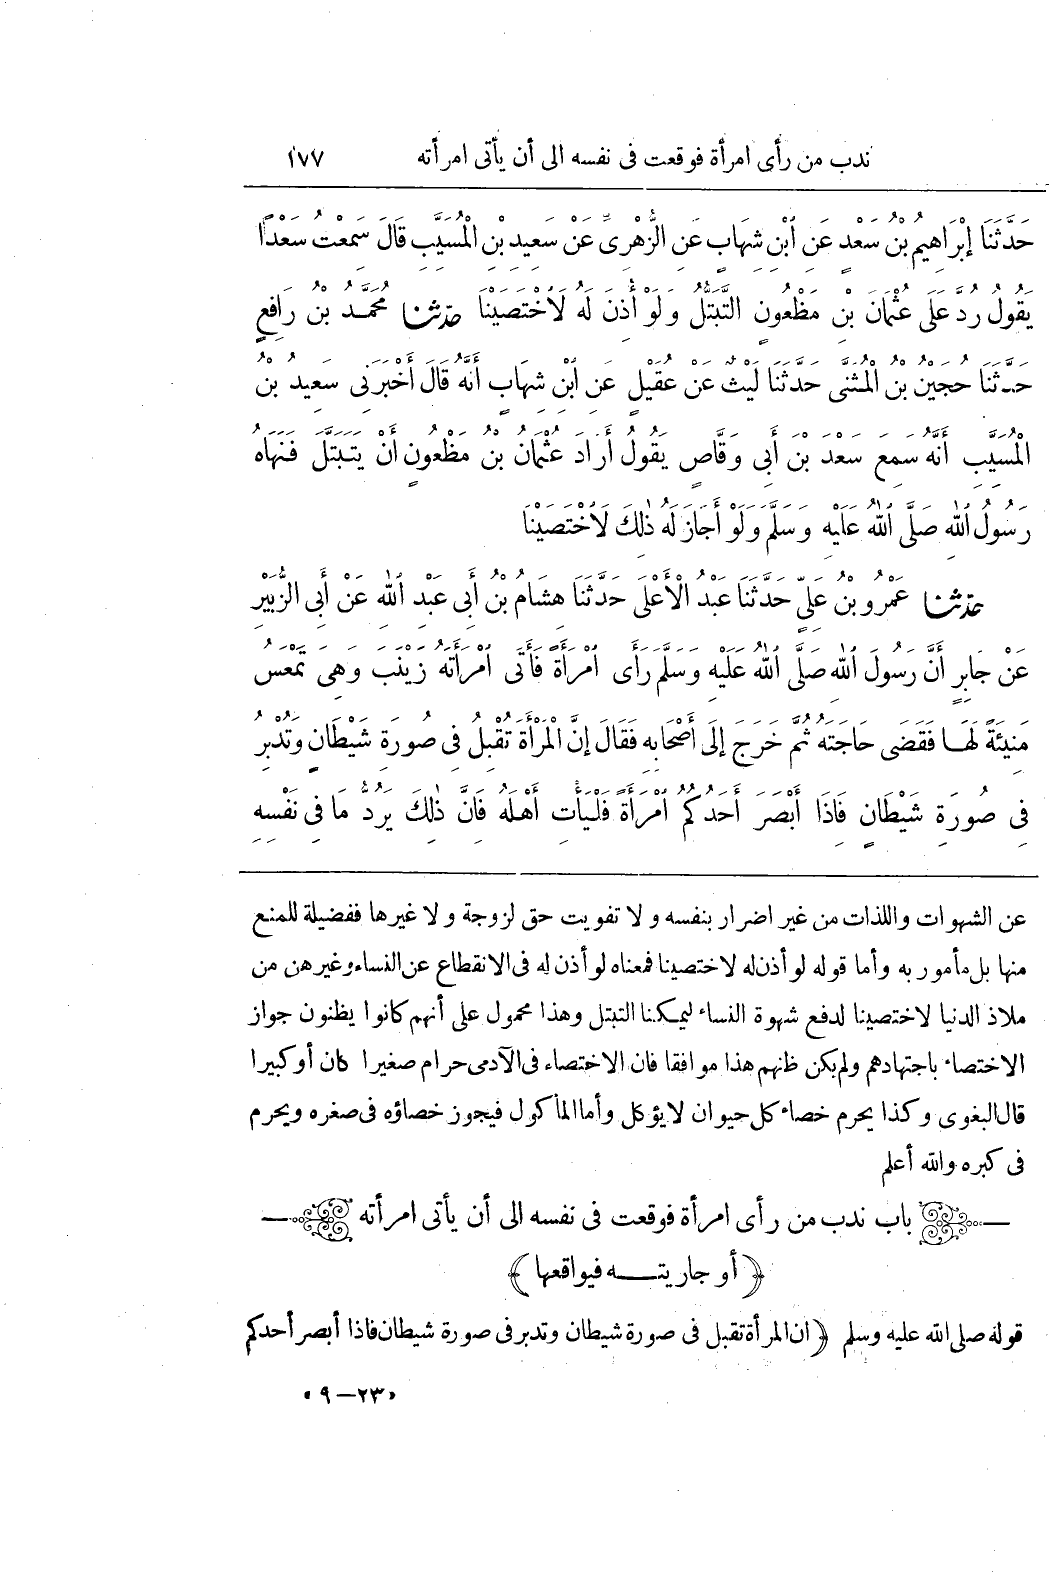 ندب من رأى امرأة فوقعت فى نفسه الى أن يأتى امرأته ١٧٧
حَدَّثَنَا إِبْرَاهِيمُ بْنُ سَعْدٍ عَنِ ابْنِ شِهَابٍ عَنِ الزُّهْرِىِّ عَنْ سَعِيدِ بْنِ الْمُسَيَّبِ قَالَ سَمِعْتُ سَعْدًا
يَقُولُ رُدَّ عَلَى عُثْمَانَ بْنِ مَظْعُونٍ التَّبَتُّلُ وَلَوْ أُذِنَ لَهُ لَاخْتَصَيْنَا حدثنا مُحَمَّدُ بْنُ رَافِعٍ
حَدَّثَنَا حُجَيْنُ بْنُ الْمُثَنَّى حَدَّثَنَا لَيْثٌ عَنْ عُقَيْلٍ عَنِ ابْنِ شِهَابٍ أَنَّهُ قَالَ أَخْبَرَنِى سَعِيدُ بْنُ
الْمُسَيَّبِ أَنَّهُ سَمِعَ سَعْدَ بْنَ أَبِى وَقَّاصٍ يَقُولُ أَرَادَ عُثْمَانُ بْنُ مَظْعُونٍ أَنْ يَتَبَتَّلَ فَنَهَاهُ
رَسُولُ اللهِ صَلَّى اللهُ عَلَيْهِ وَسَلَّمَ وَلَوْ أَجَازَ لَهُ ذٰلِكَ لَاخْتَصَيْنَا
حدثنا عَمْرُو بْنُ عَلِىٍّ حَدَّثَنَا عَبْدُ الْأَعْلَى حَدَّثَنَا هِشَامُ بْنُ أَبِى عَبْدِ اللهِ عَنْ أَبِى الزُّبَيْرِ
عَنْ جَابِرٍ أَنَّ رَسُولَ اللهِ صَلَّى اللهُ عَلَيْهِ وَسَلَّمَ رَأَى امْرَأَةً فَأَتَى امْرَأَتَهُ زَيْنَبَ وَهِىَ تَمْعَسُ
مَنِيئَةً لَهَا فَقَضَى حَاجَتَهُ ثُمَّ خَرَجَ إِلَى أَصْحَابِهِ فَقَالَ إِنَّ الْمَرْأَةَ تُقْبِلُ فِى صُورَةِ شَيْطَانٍ وَتُدْبِرُ
فِى صُورَةِ شَيْطَانٍ فَاذَا أَبْصَرَ أَحَدُكُمُ امْرَأَةً فَلْيَأْتِ أَهْلَهُ فَانَّ ذٰلِكَ يَرُدُّ مَا فِى نَفْسِهِ
عن الشهوات واللذات من غير اضرار بنفسه ولا تفويت حق لزوجة ولا غيرها ففضيلة للمنع
منها بل مأمور به وأما قوله لو أذن له لاختصينا فمعناه لو أذن له فى الانقطاع عن النساء وغيرهن من
ملاذ الدنيا لاختصينا لدفع شهوة النساء ليمكننا التبتل وهذا محمول على أنهم كانوا يظنون جواز
الاختصاء باجتهادهم ولم يكن ظنهم هذا موافقا فان الاختصاء فى الآدمى حرام صغيرا كان أو كبيرا
قال البغوى وكذا يحرم خصاء كل حيوان لا يؤكل وأما المأكول فيجوز خصاؤه فى صغره ويحرم
فى كبره والله أعلم
باب ندب من رأى امرأة فوقعت فى نفسه الى أن يأتى امرأته
﴿أو جاريتـــه فيواقعها﴾
قوله صلى الله عليه وسلم ﴿ان المرأة تقبل فى صورة شيطان وتدبر فى صورة شيطان فاذا أبصر أحدكم
«٢٣-٩»